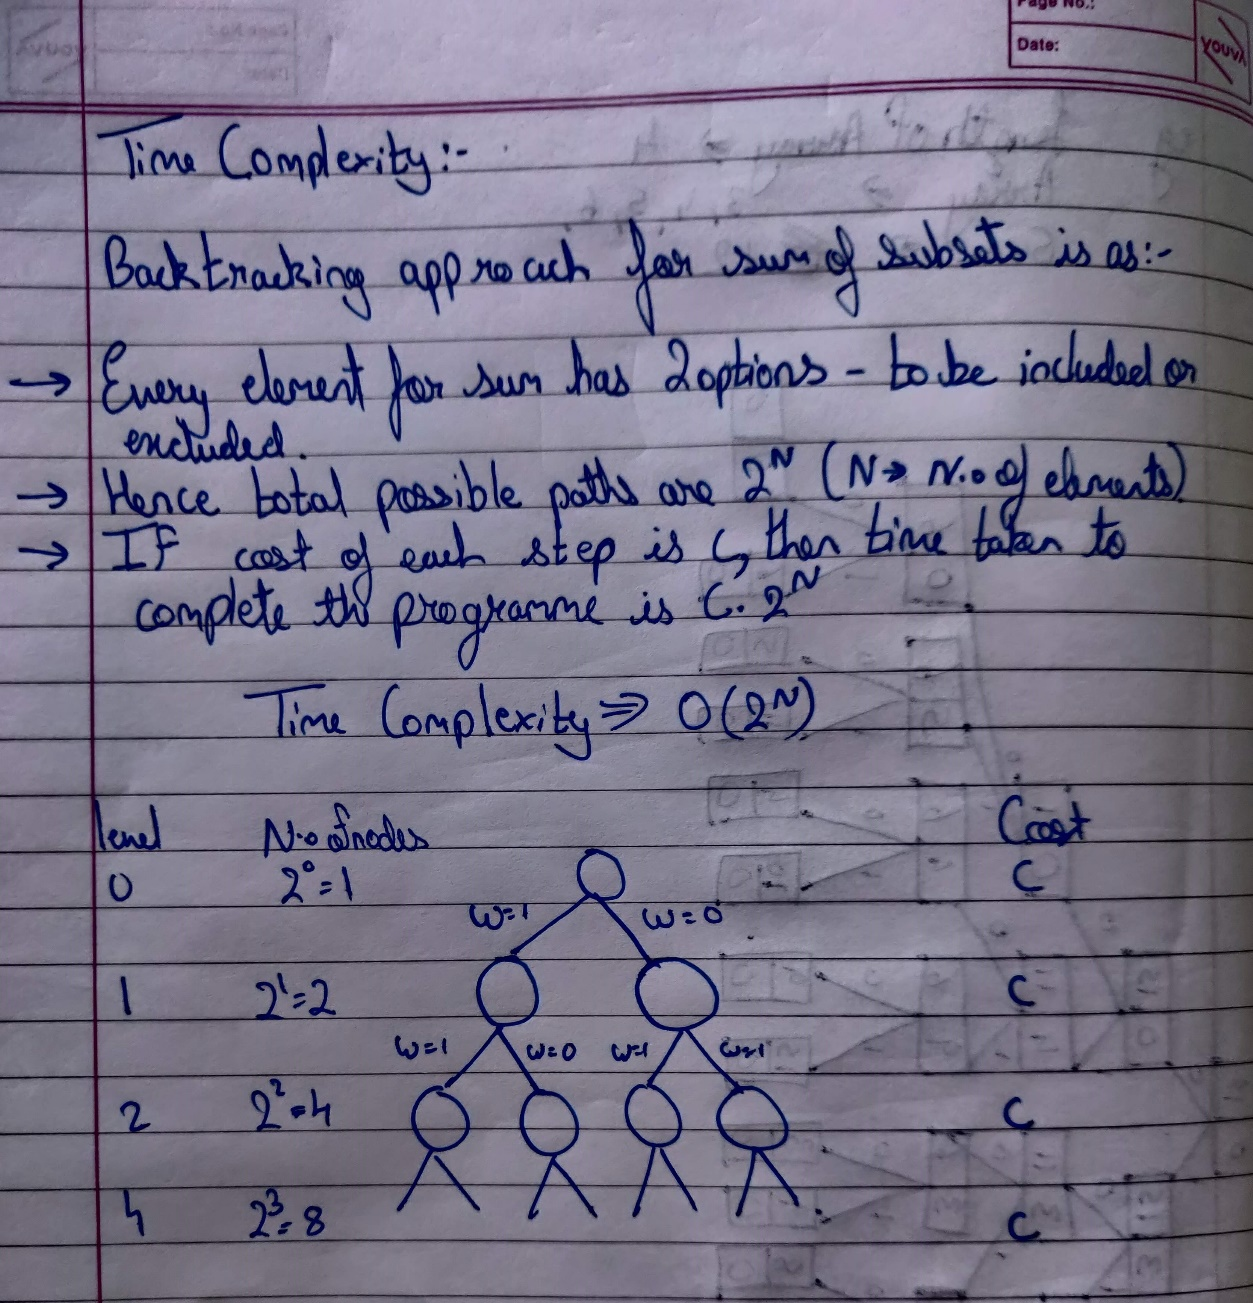 Page No.:
Date:
YOUVA
Time Complexity:-
Backtracking approach for sum of subsets is as:-
→ Every element for sum has 2 options - to be included or
excluded.
→ Hence total possible paths are 2^N (N→ N.o of elements)
→ If cost of each step is C, then time taken to
complete the programme is C. 2^N
Time Complexity ⇒ O(2^N)
level N.o of nodes Cost
0 2^0=1 C
w=1 w=0
1 2^1=2 C
w=1 w=0 w=1 w=1
2 2^2=4 C
4 2^3=8 C